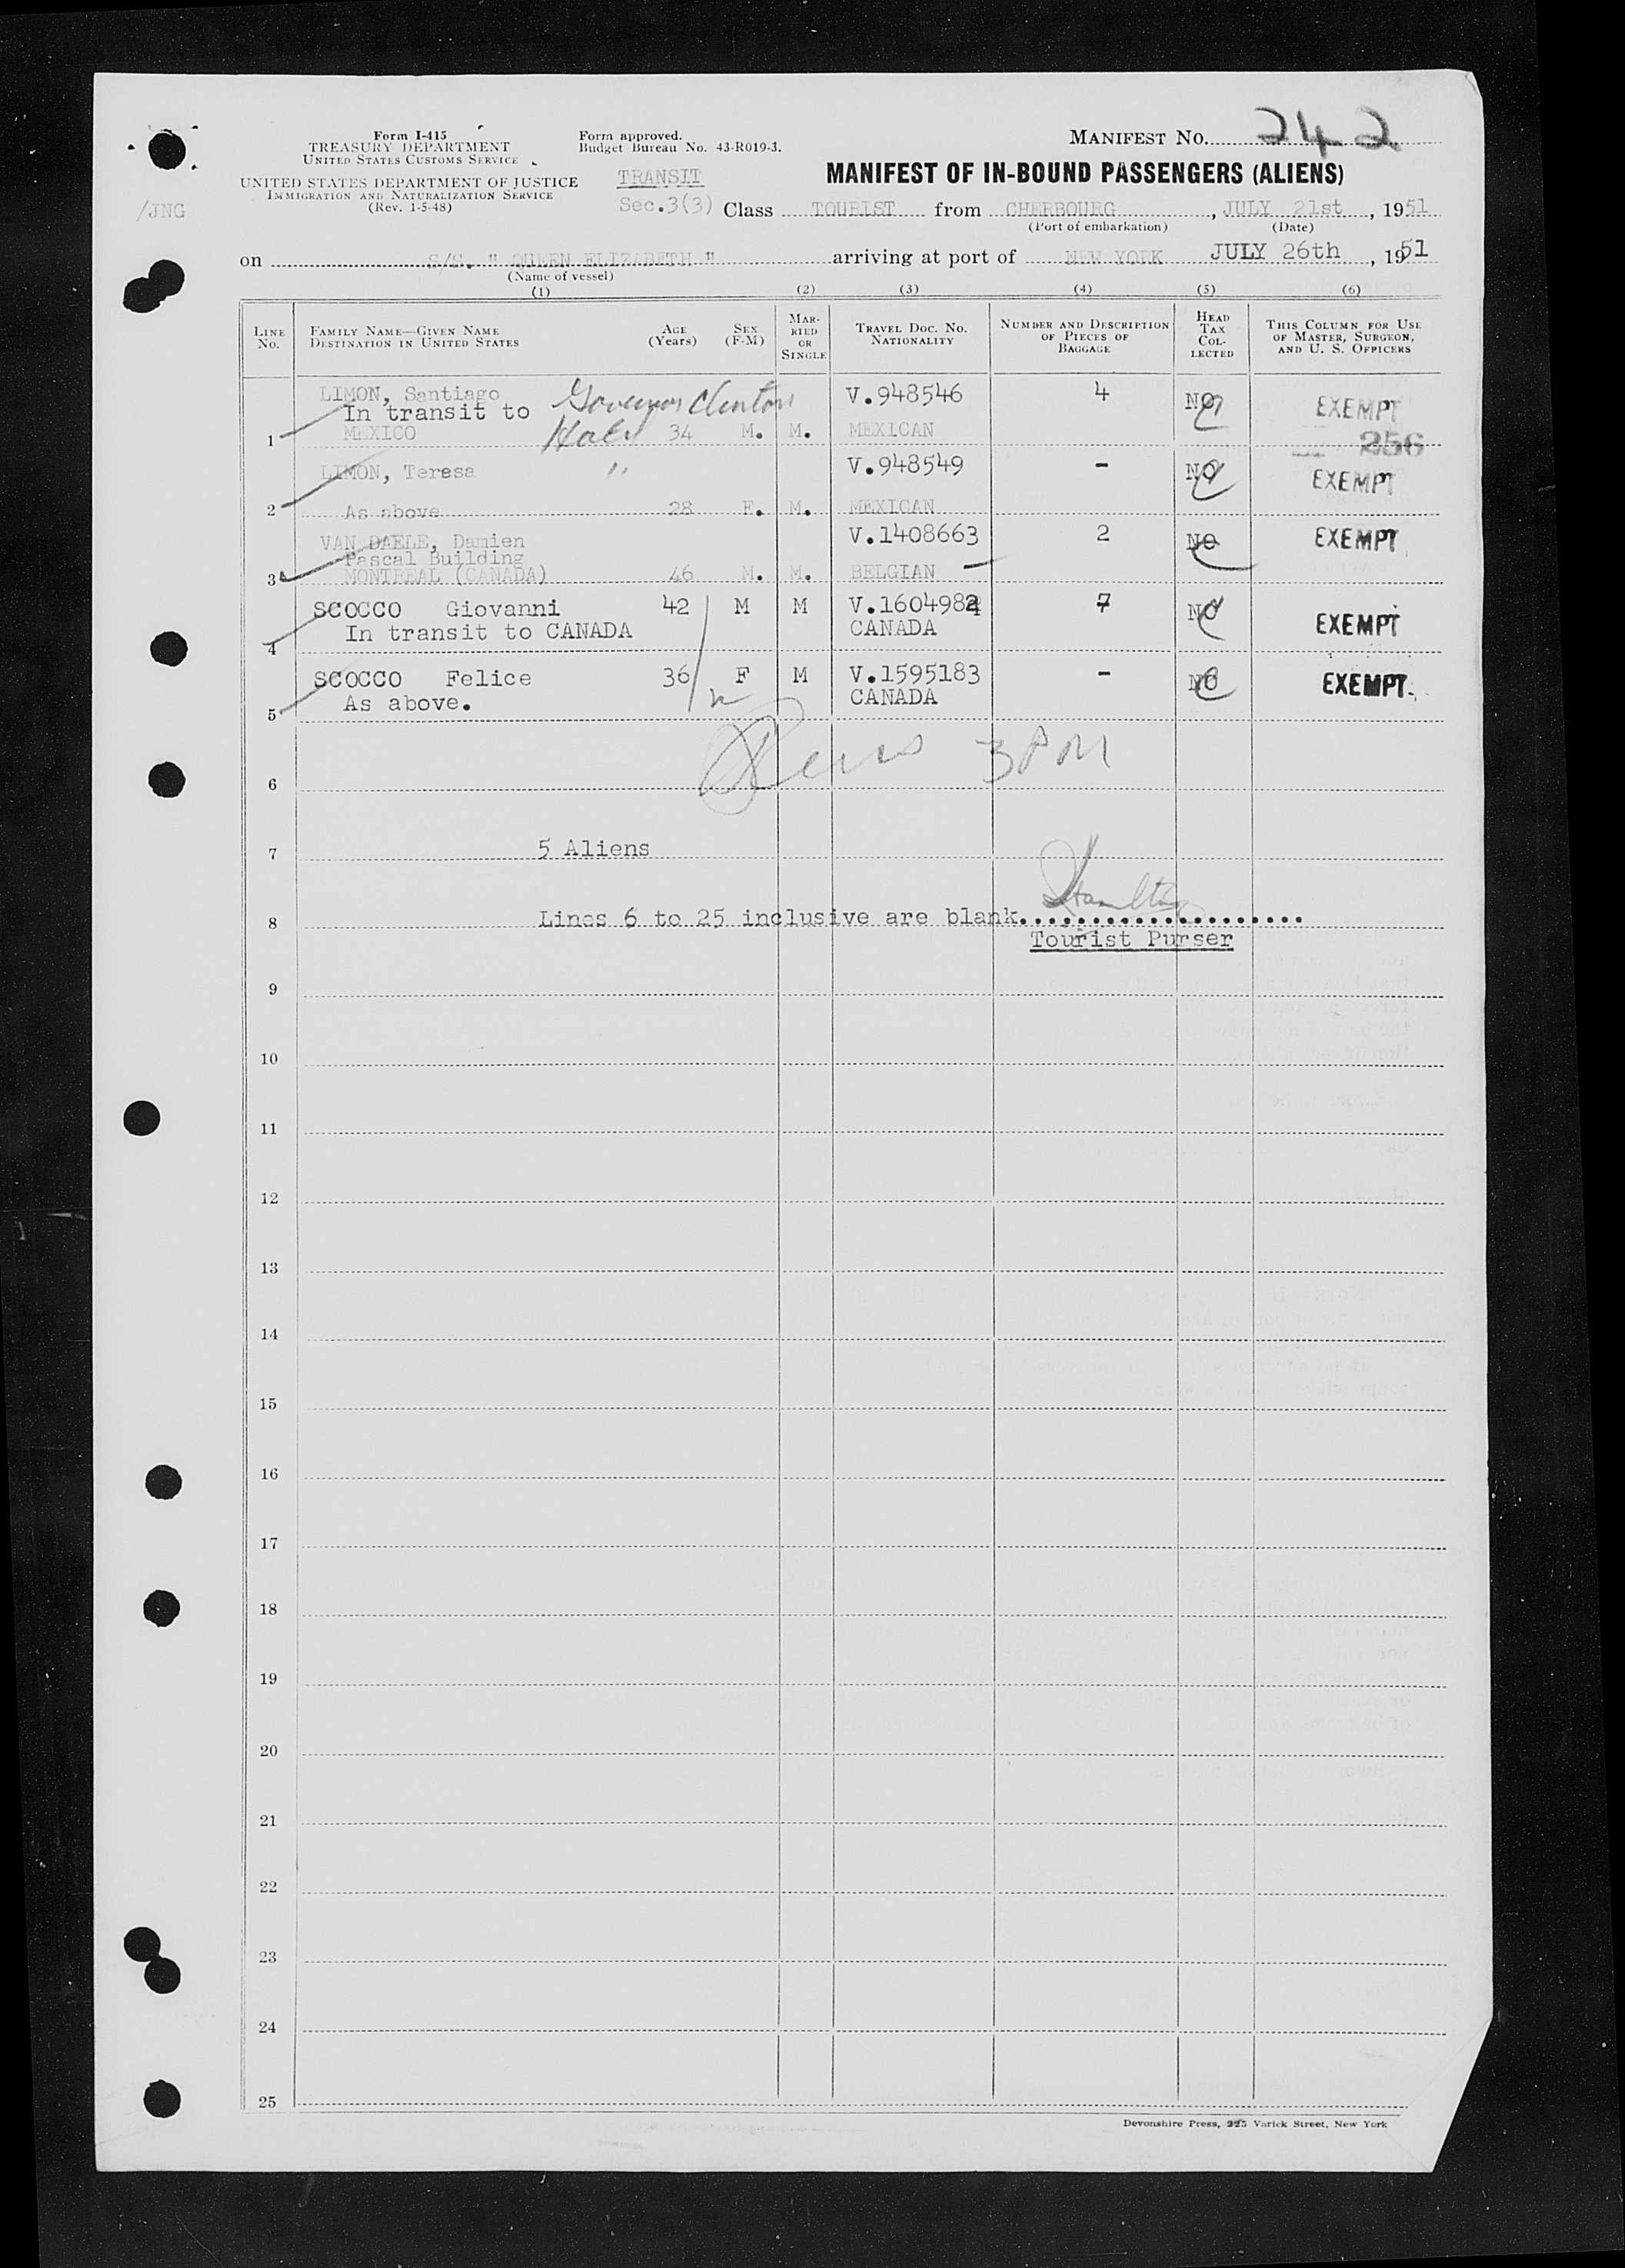 Form I-415
TREASURY DEPARTMENT
UNITED STATES CUSTOMS SERVICE
UNITED STATES DEPARTMENT OF JUSTICE
IMMIGRATION AND NATURALIZATION SERVICE
(Rev. 1-5-48)
/JNG
Form approved.
Budget Bureau No. 43-R019-3.
MANIFEST NO. 242
MANIFEST OF IN-BOUND PASSENGERS (ALIENS)
TRANSIT
Sec.3(3) Class TOURIST from CHERBOURG, JULY 21st, 1951
(Port of embarkation) (Date)
on S/S. " QUEEN ELIZABETH " arriving at port of NEW YORK JULY 26th, 1951
(Name of vessel)
(1) (2) (3) (4) (5) (6)
LINE NO. FAMILY NAME—GIVEN NAME DESTINATION IN UNITED STATES AGE (Years) SEX (F-M) MARRIED OR SINGLE TRAVEL DOC. NO. NATIONALITY NUMBER AND DESCRIPTION OF PIECES OF BAGGAGE HEAD TAX COLLECTED THIS COLUMN FOR USE OF MASTER, SURGEON, AND U. S. OFFICERS
LIMON, Santiago Governor Clinton V.948546 4 NO EXEMPT
In transit to
1 MEXICO Hotel 34 M. M. MEXICAN 256
LIMON, Teresa " V.948549 - NO EXEMPT
2 As above 28 F. M. MEXICAN
VAN DAELE, Damien V.1408663 2 NO EXEMPT
Pascal Building
3 MONTREAL (CANADA) 46 M. M. BELGIAN
SCOCCO Giovanni 42 M M 7 NO EXEMPT
4 In transit to CANADA CANADA
SCOCCO Felice 36 F M V.1595183 - NO EXEMPT
5 As above. CANADA
3 PM
6
7 5 Aliens
Hamilton
8 Lines 6 to 25 inclusive are blank....................
Tourist Purser
9
10
11
12
13
14
15
16
17
18
19
20
21
22
23
24
25
Devonshire Press, 225 Varick Street, New York